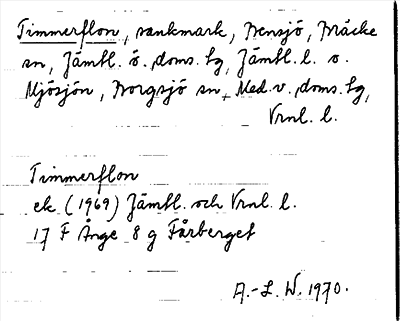 Timmerflon, sankmark, Nensjö, Bräcke
sn, Jämtl. ö. doms. sg, Jämtl. l. o.
Mjösjön, Borgsjö sn, Med. v. doms. sg,
Vrnl. l.
Timmerflon
ek (1969) Jämtl. och Vrnl. l.
17 F Ånge 8 g Fårberget
A.-L. W. 1970.